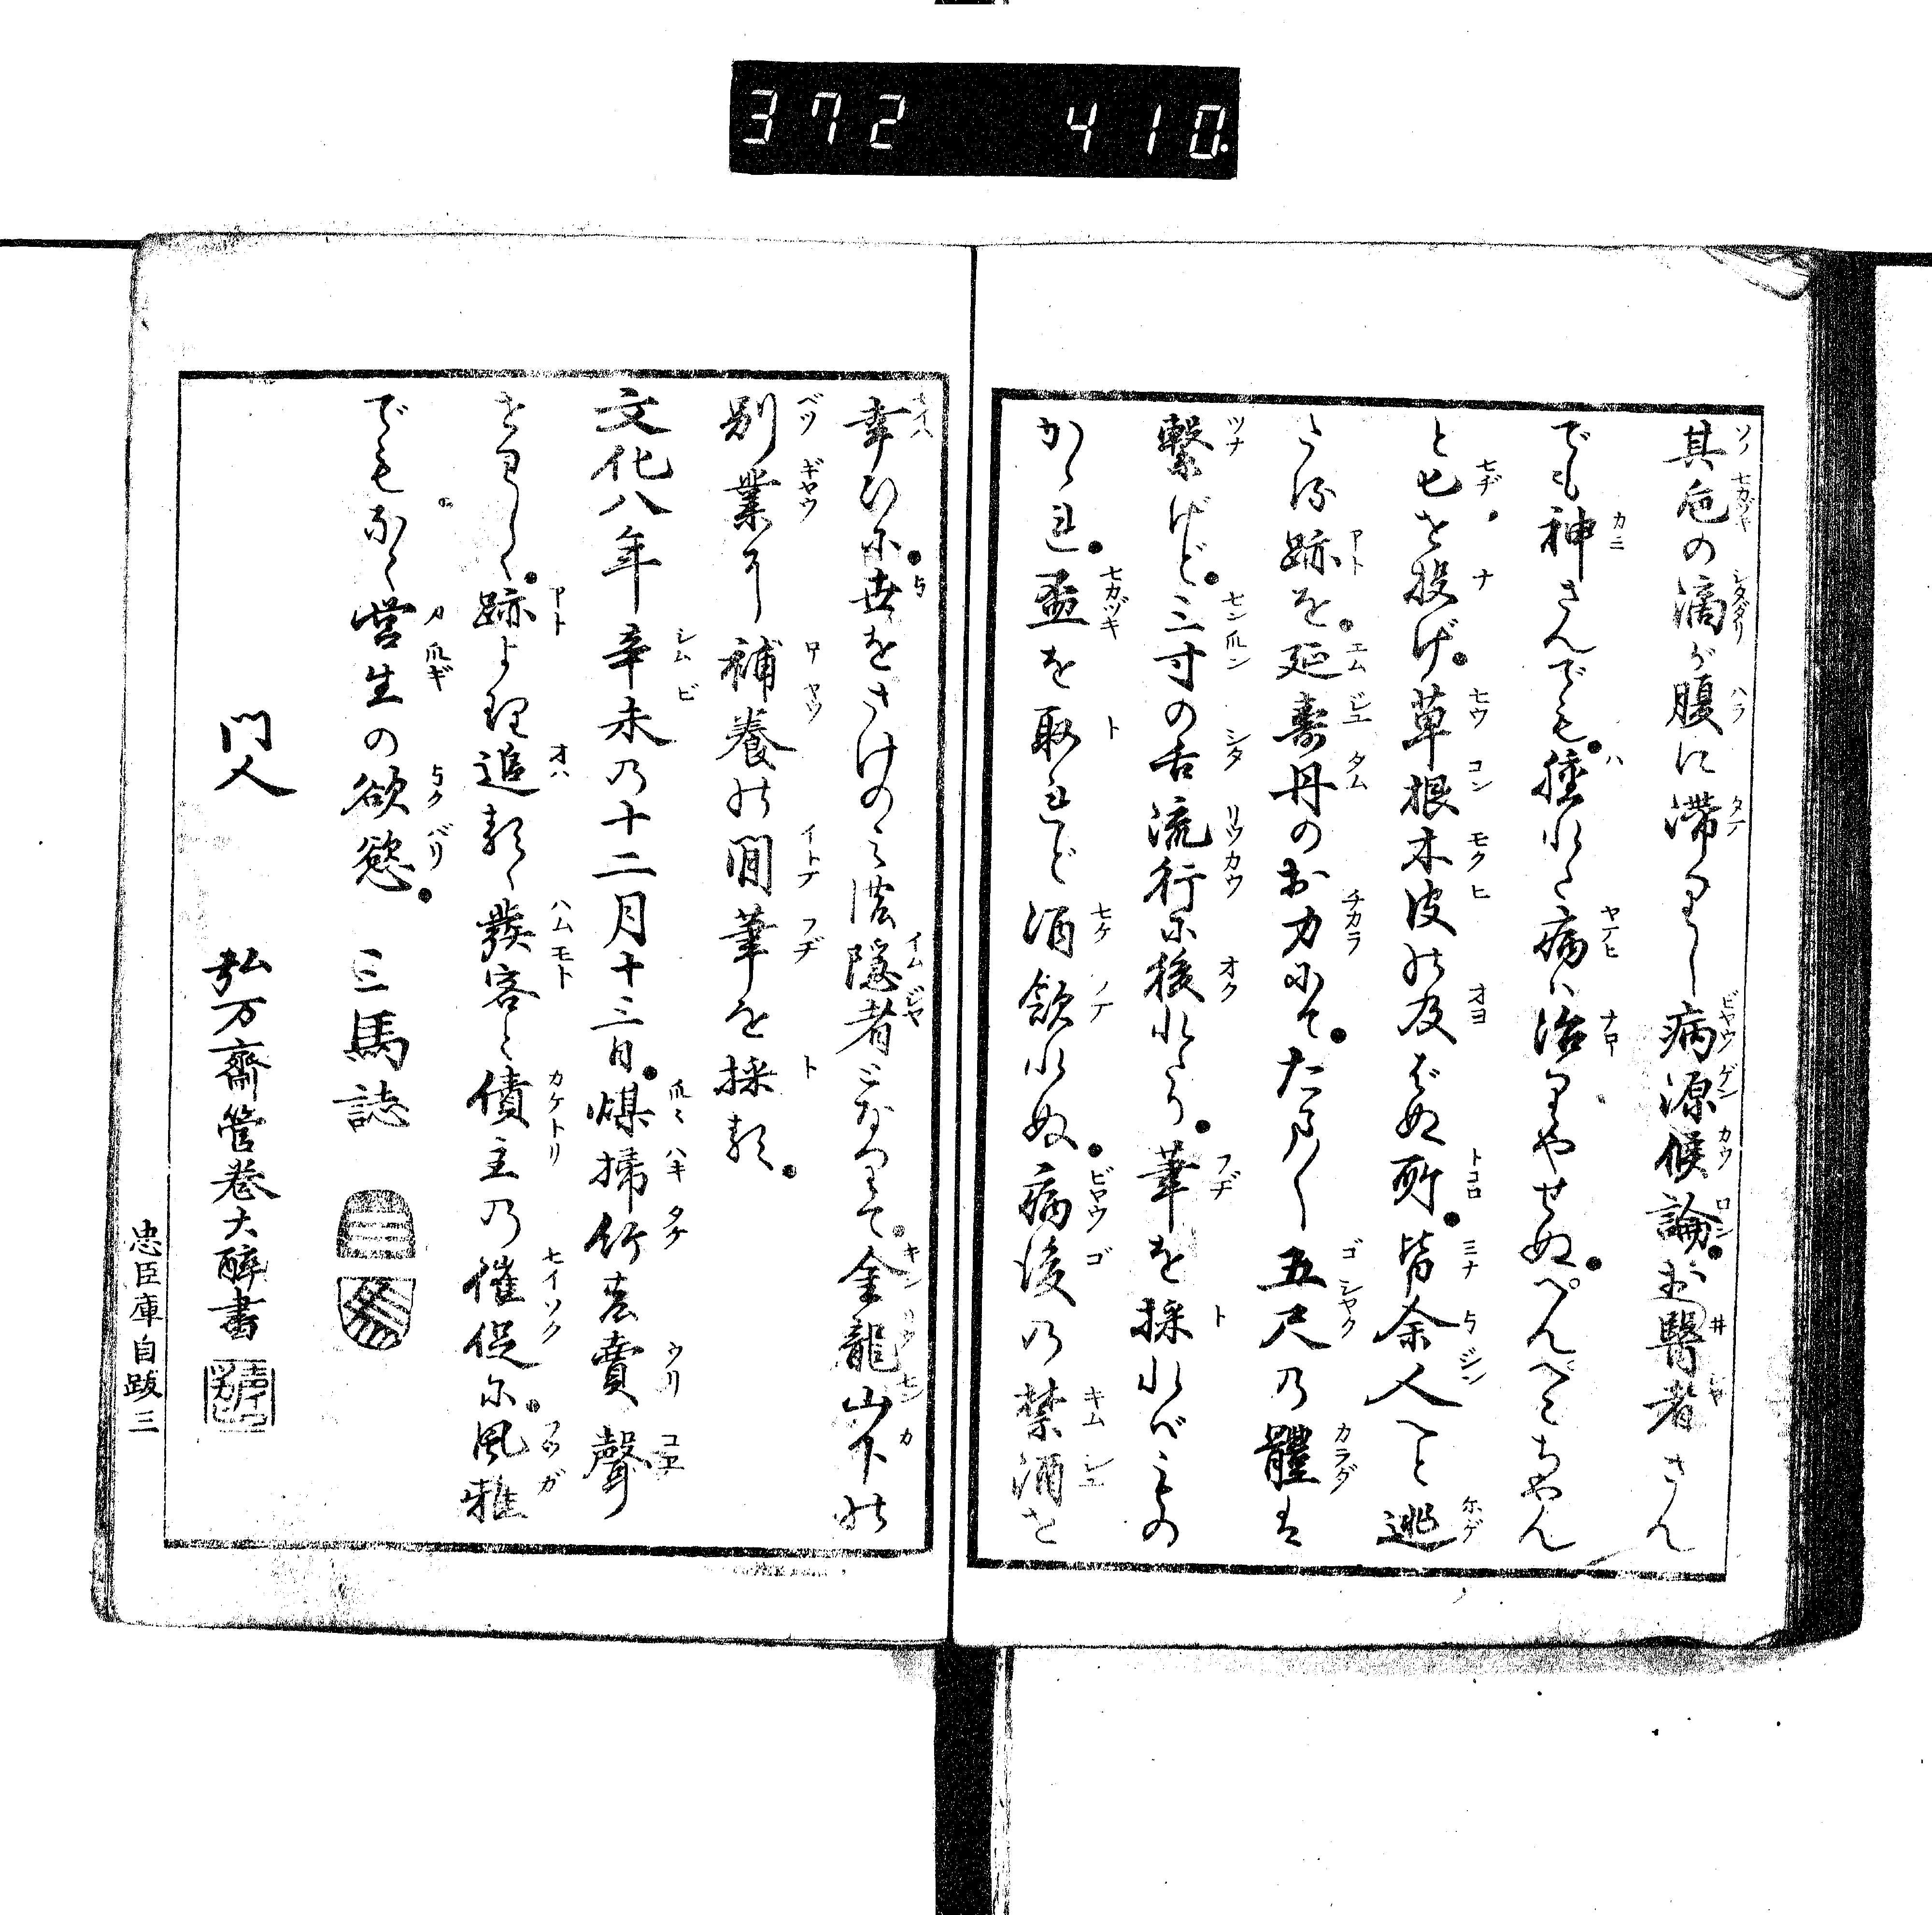 372 410.
其巵の滴が腹に滞りし病源候論。お醫者さん
でも神さんでも。腫れた病は治りやせぬ。ぺんぺこちやん
と匕を投げ。草根木皮の及ばぬ所。皆余人へと迯
たる跡を。延壽丹のお力にて。たましく五尺の體は
繋げど。三寸の舌流行に後れたり。筆を採ればもの
かゝれ。盃を取れど酒飲れぬ。病後の禁酒を
幸ひに。世をさけのみ陰隠者となりて。金龍山下の
別業に補養の間筆を採る。
文化八年辛未の十二月十三日。煤掃竹売賣聲
をりしく。跡より追るゝ發客と債主の催促に。風雅
でもなく営生の欲慾。
三馬誌
門人 弘万齋管巻大醉書
忠臣庫自跋 三